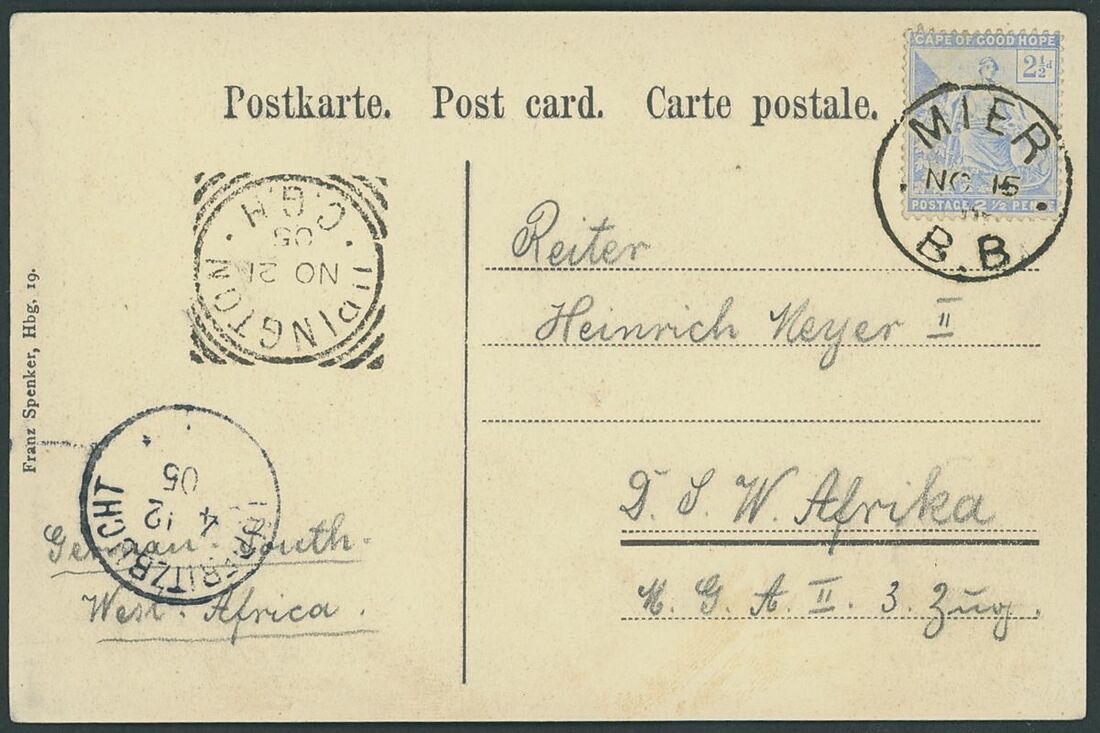 Postkarte. Post card. Carte postale.
CAPE OF GOOD HOPE
2½d
POSTAGE 2 1/2 PENCE
MIER
NO 15
B.B.
UPINGTON
C.G.H
NO 21
05
Reiter
Heinrich Meyer II
D. S. W. Afrika
M. G. A. II. 3. Zug.
LÜDERITZBUCHT
4 12
05
German-South-
West-Africa.
Franz Spenker, Hbg. 19.